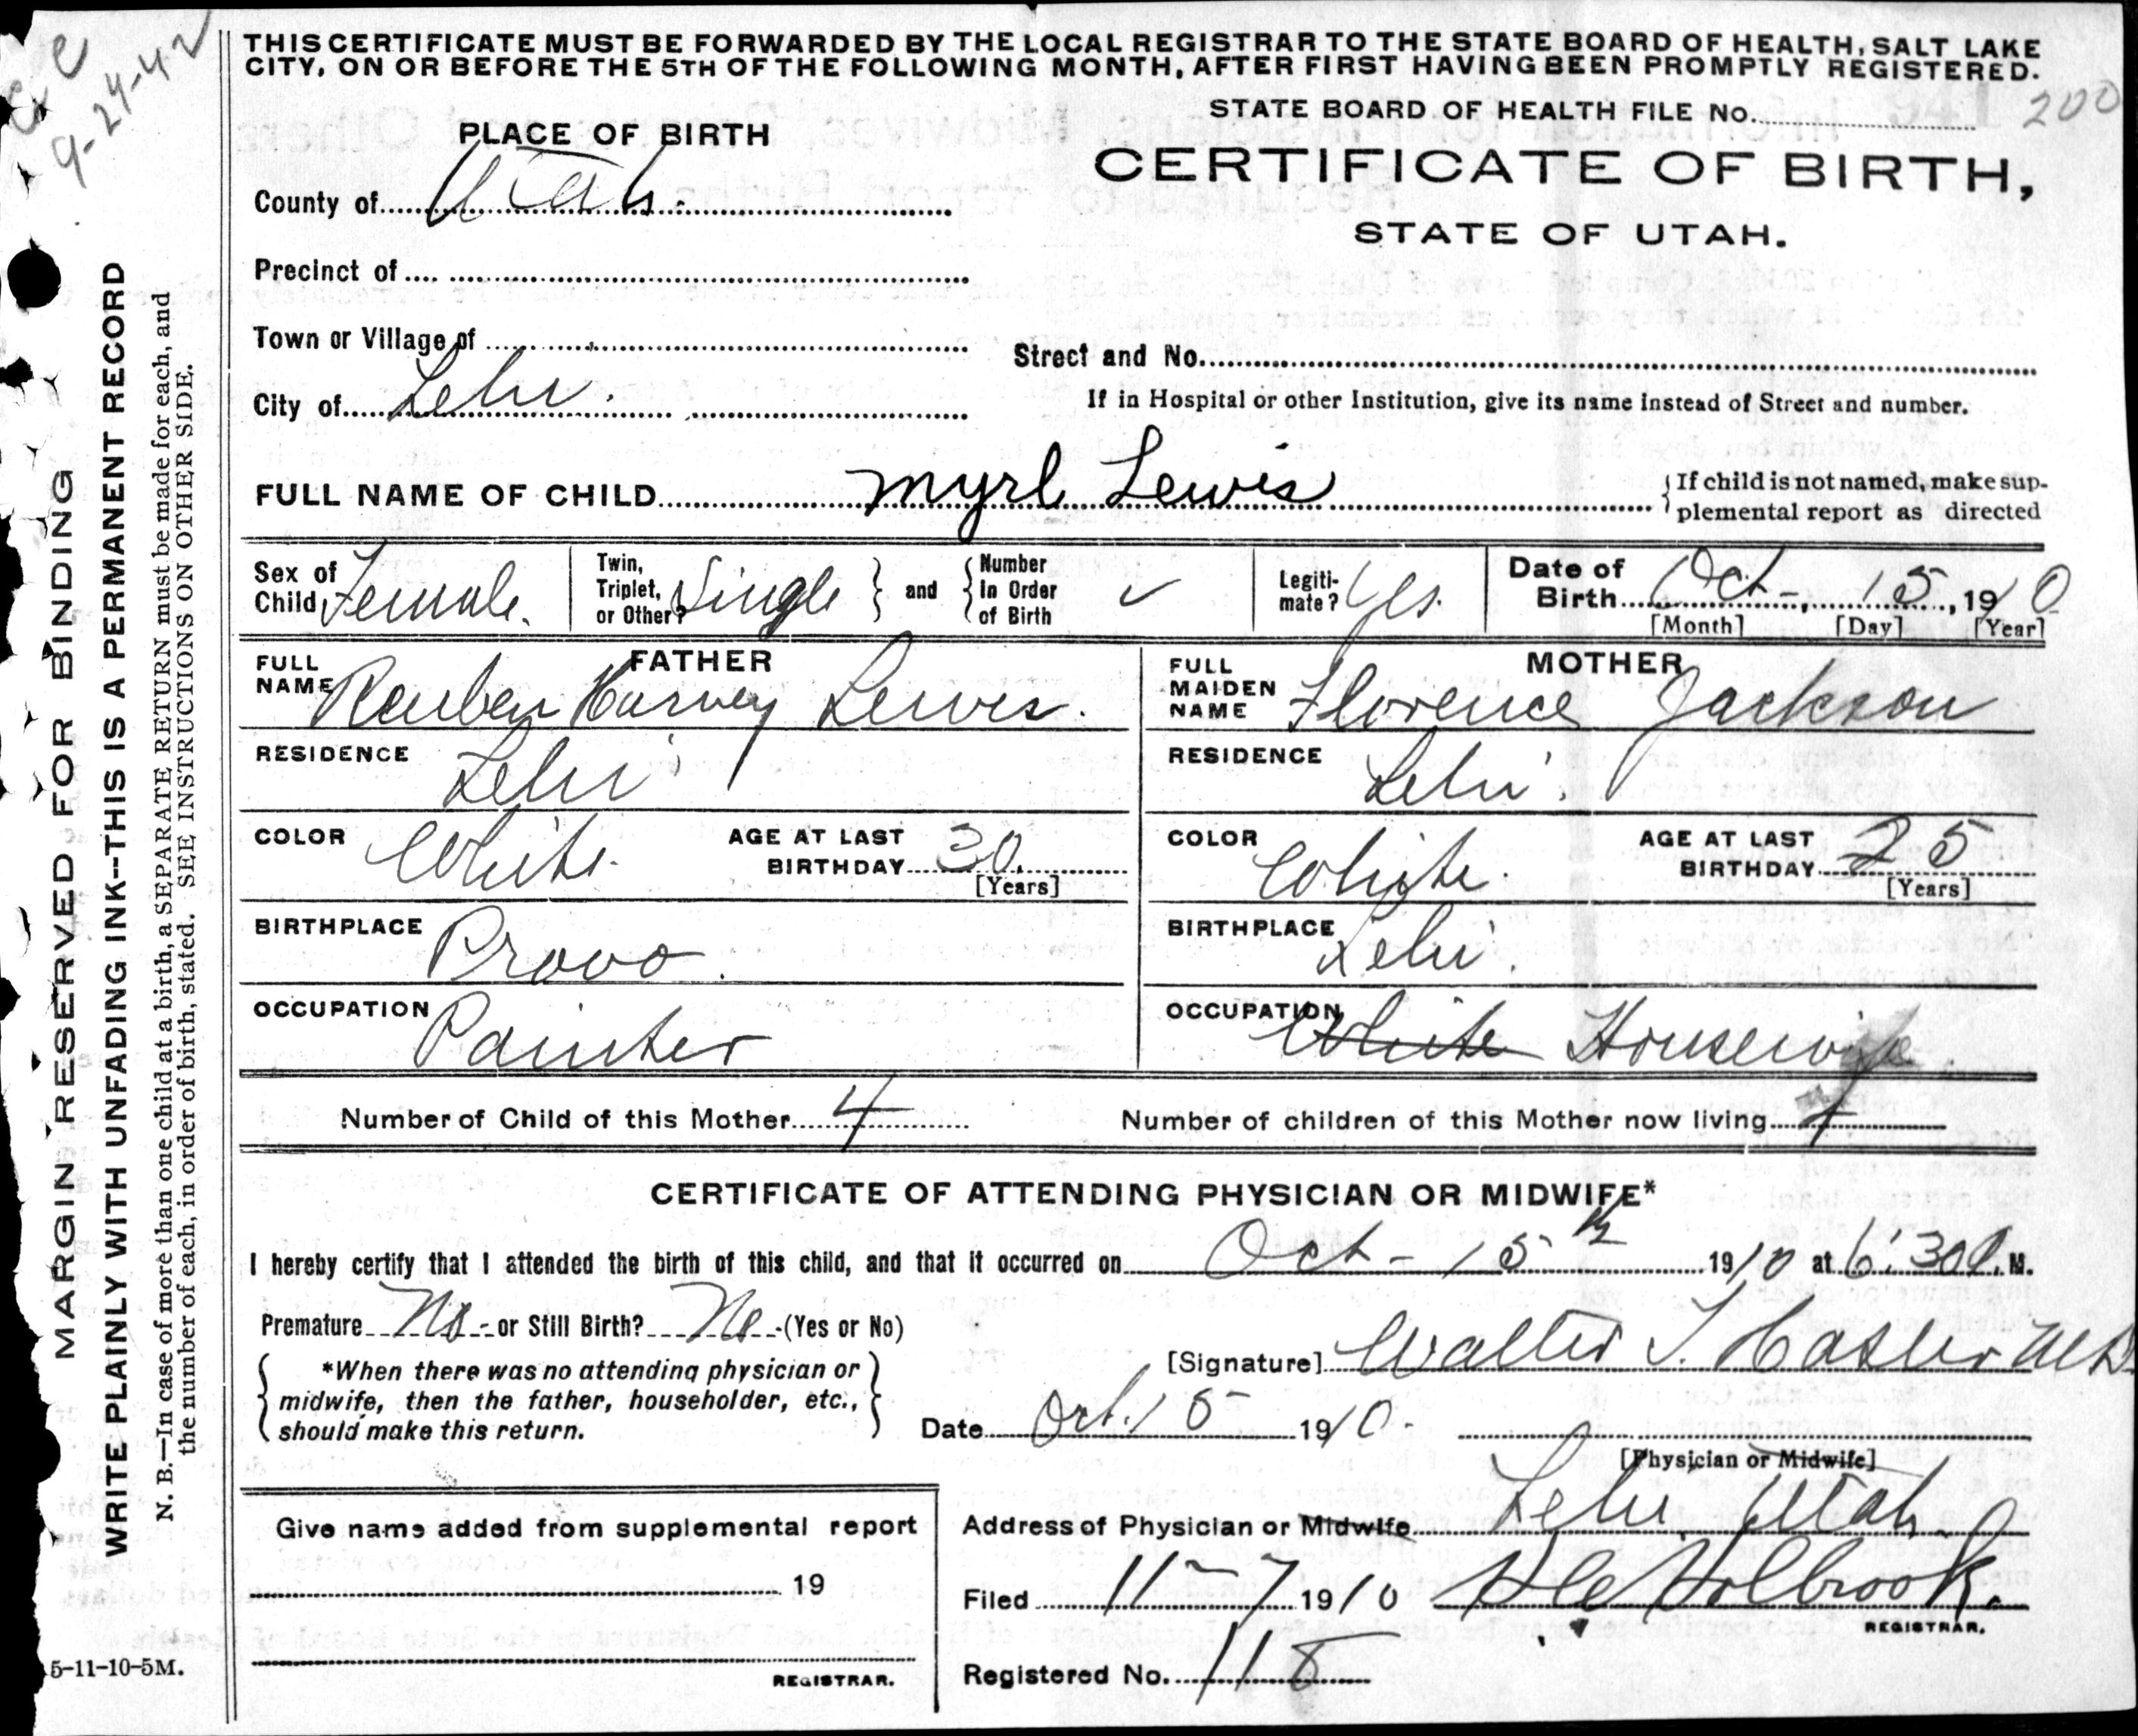 9-24-42
THIS CERTIFICATE MUST BE FORWARDED BY THE LOCAL REGISTRAR TO THE STATE BOARD OF HEALTH, SALT LAKE
CITY, ON OR BEFORE THE 5TH OF THE FOLLOWING MONTH, AFTER FIRST HAVING BEEN PROMPTLY REGISTERED.
STATE BOARD OF HEALTH FILE No. 200
PLACE OF BIRTH
CERTIFICATE OF BIRTH,
STATE OF UTAH.
County of Utah.
Precinct of
Town or Village of
Street and No.
City of Lehi.
If in Hospital or other Institution, give its name instead of Street and number.
FULL NAME OF CHILD Myrl Lewis
If child is not named, make sup-
plemental report as directed
Sex of Child Female.
Twin, Triplet, or Other? Single and
Number In Order of Birth ✓
Legiti-mate? Yes.
Date of Birth Oct-, 15, 1910
[Month] [Day] [Year]
FATHER
FULL NAME Reuben Harvey Lewis.
MOTHER
FULL MAIDEN NAME Florence Jackson
RESIDENCE Lehi
RESIDENCE Lehi.
COLOR White. AGE AT LAST BIRTHDAY 30 [Years]
COLOR White. AGE AT LAST BIRTHDAY 25 [Years]
BIRTHPLACE Provo.
BIRTHPLACE Lehi.
OCCUPATION Painter
OCCUPATION White Housewife
Number of Child of this Mother 4
Number of children of this Mother now living 4
CERTIFICATE OF ATTENDING PHYSICIAN OR MIDWIFE*
I hereby certify that I attended the birth of this child, and that it occurred on Oct- 15th 1910 at 6:30 M.
Premature No or Still Birth? No (Yes or No)
*When there was no attending physician or
midwife, then the father, householder, etc.,
should make this return.
[Signature] Walter T. Hasler MD.
Date Oct. 15 1910.
[Physician or Midwife]
Give name added from supplemental report
19
REGISTRAR.
Address of Physician or Midwife Lehi, Utah.
Filed 11-7 1910 Holbrook.
REGISTRAR.
Registered No. 118
5-11-10-5M.
MARGIN RESERVED FOR BINDING
WRITE PLAINLY WITH UNFADING INK--THIS IS A PERMANENT RECORD
N. B.—In case of more than one child at a birth, a SEPARATE RETURN must be made for each, and
the number of each, in order of birth, stated. SEE INSTRUCTIONS ON OTHER SIDE.